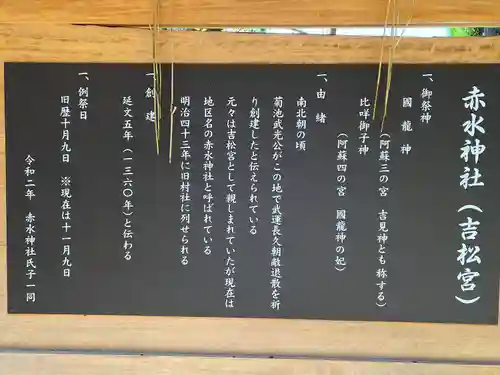 赤水神社(吉松宮)
一、御祭神
國龍神
(阿蘇三の宮 吉見神とも称する)
比咩御子神
(阿蘇四の宮 國龍神の妃)
一、由緒
南北朝の頃
菊池武光公がこの地で武運長久朝敵退散を祈
り創建したと伝えられている
元々は吉松宮として親しまれていたが現在は
地区名の赤水神社と呼ばれている
明治四十三年に旧村社に列せられる
一、創建
延文五年(一三六〇年)と伝わる
一、例祭日
旧暦十月九日 ※現在は十一月九日
令和二年 赤水神社氏子一同